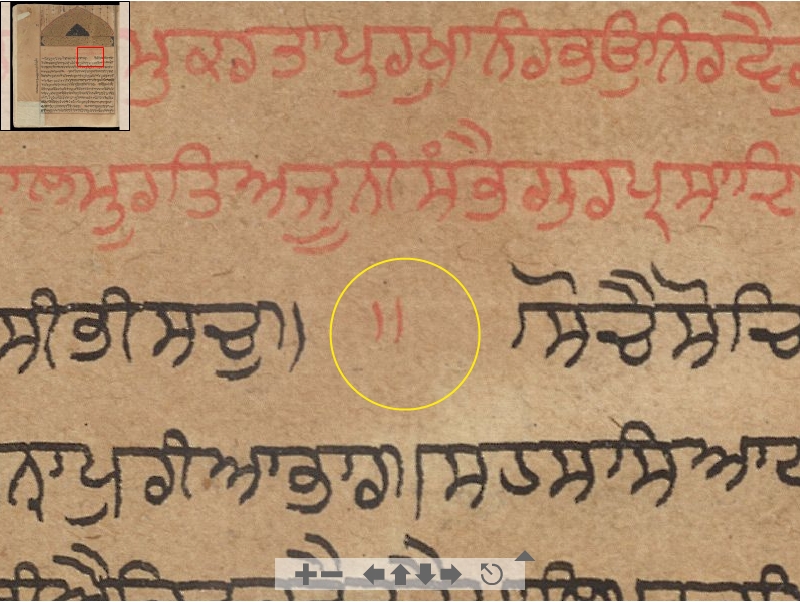 ਮੁਕਰਤਾਪੁਰਖੁਨਿਰਭਉਨਿਰਵੈਰੁ
ਾਲਮੂਰਤਿਅਜੂਨੀਸੰਭੈਗੁਰਪ੍ਰਸਾਦਿ
ਸੀਭੀਸਚੁ॥ ॥ ਸੋਚੈਸੋਚਿ
ਨਾਪੁਰੀਆਭਾਰ।ਸਹਸਸਿਆਣ